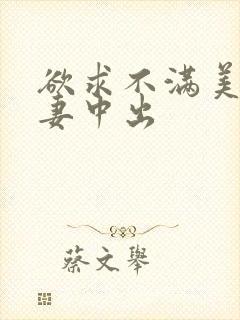 欲求不满美
妻中出
蔡文举